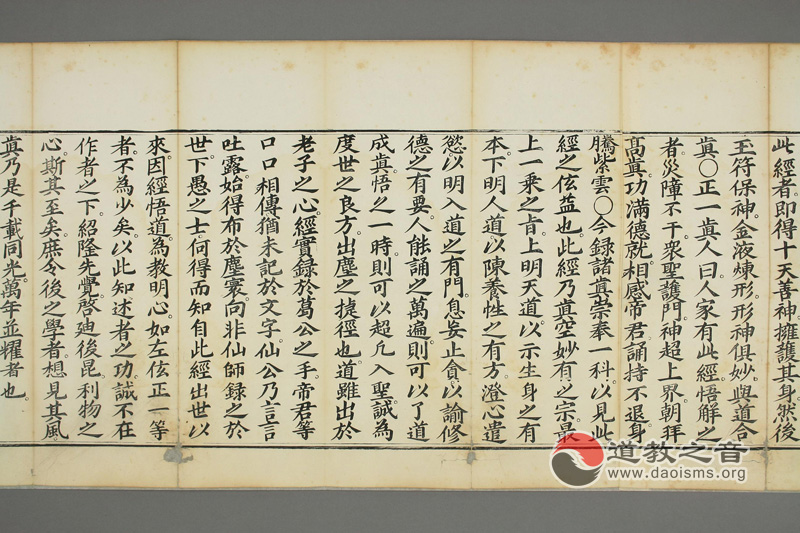 此經者即得十天善神擁護其身然後
玉符保神金液煉形形神俱妙與道合
眞〇正一眞人曰人家有此經悟解之
者災障不干衆聖護門神超上界朝拜
高眞功滿德就相感帝君誦持不退身
騰紫雲〇今録諸眞崇奉一科以見此
經之伭益也此經乃眞空妙有之宗最
上一乗之旨上明天道以示生身之有
本下明人道以陳養性之有方澄心遣
慾以明入道之有門息妄止貪以諭修
德之有要人能誦之萬遍則可以了道
成眞悟之一時則可以超凢入聖誠為
度世之良方出塵之捷徑也道雖出於
老子之心經實録於葛公之手帝君等
口口相傳猶未記於文字仙公乃言言
吐露始得布於塵寰向非仙師録之於
世下愚之士何得而知自此經出世以
來因經悟道為教明心如左伭正一等
者不為少矣以此知述者之功誠不在
作者之下紹隆先覺啓廸後昆利物之
心斯其至矣庶令後之學者想見其風
眞乃是千載同光萬年並耀者也
道教之音
www.daoisms.org